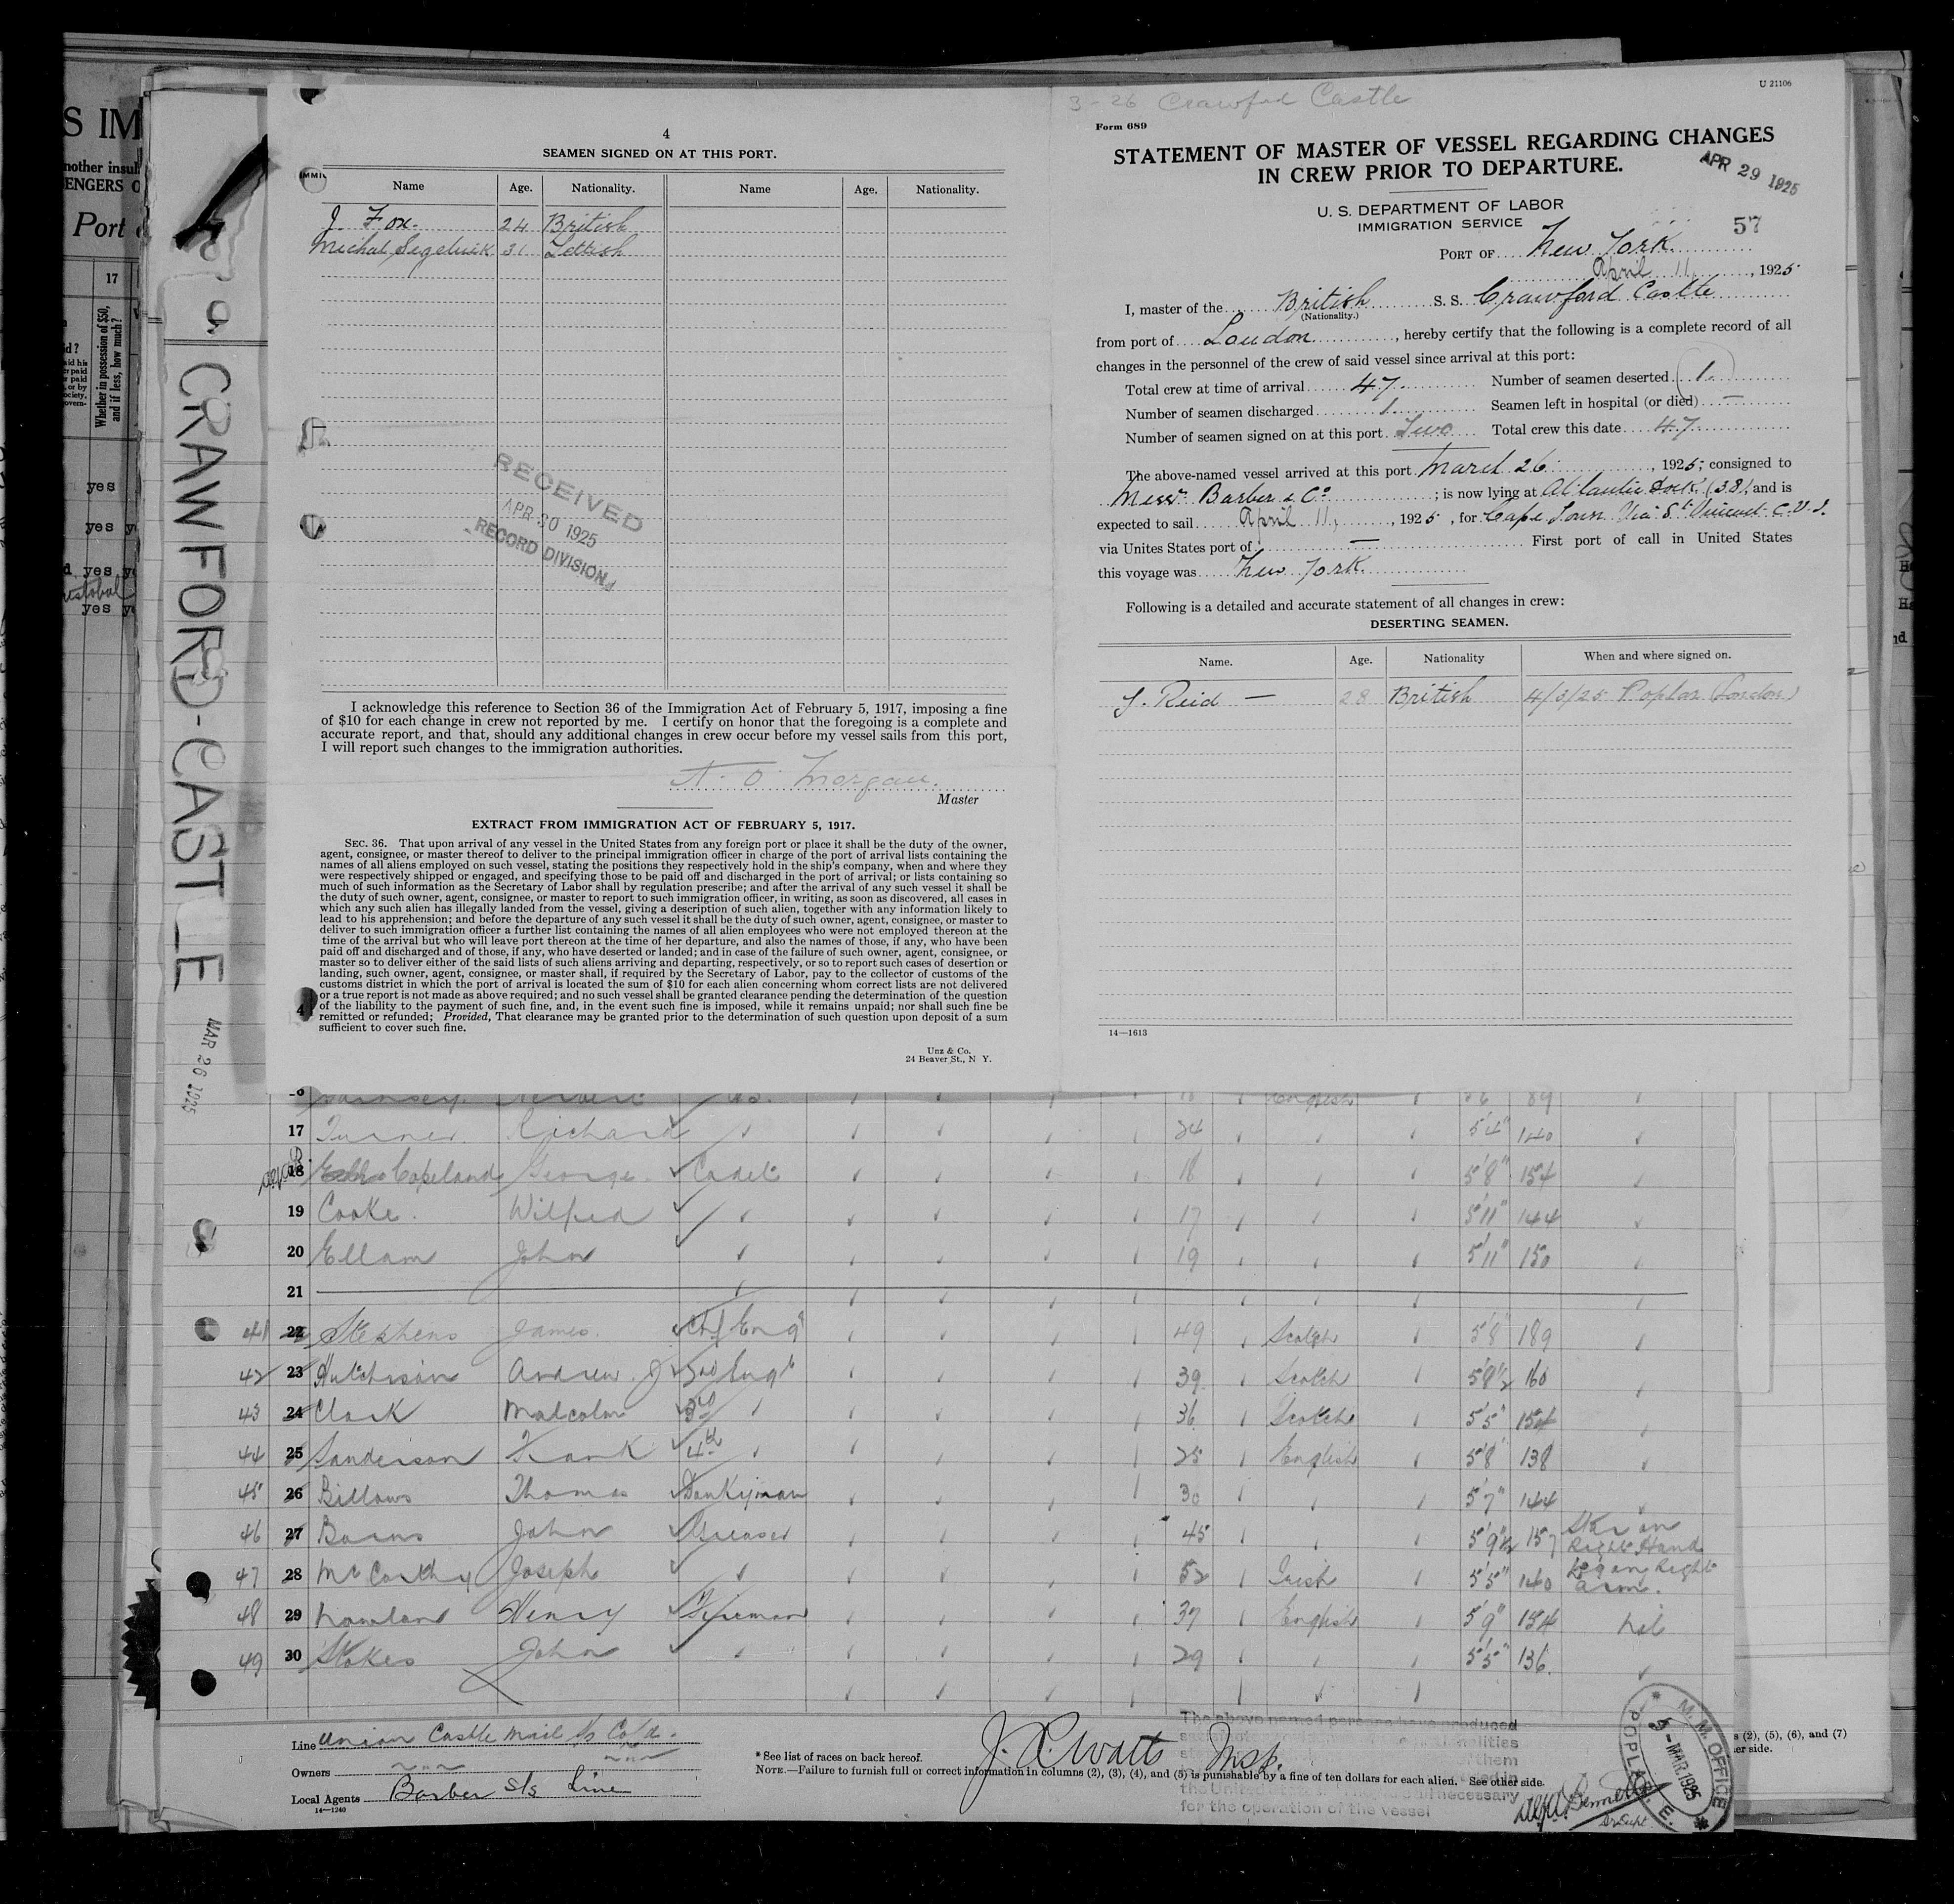 S IM
nother insul
ENGERS O
Port
17
Whether in possession of $50,
and if less, how much?
yes
yes
yes
yes
CRAWFORD-CASTLE
MAR 26 1925
4
SEAMEN SIGNED ON AT THIS PORT.
Name Age. Nationality. Name Age. Nationality.
J. Fox. 24 British
Michal 31 Lettish
RECEIVED
APR 30 1925
RECORD DIVISION
I acknowledge this reference to Section 36 of the Immigration Act of February 5, 1917, imposing a fine
of $10 for each change in crew not reported by me. I certify on honor that the foregoing is a complete and
accurate report, and that, should any additional changes in crew occur before my vessel sails from this port,
I will report such changes to the immigration authorities.
Morgan.
Master
EXTRACT FROM IMMIGRATION ACT OF FEBRUARY 5, 1917.
SEC. 36. That upon arrival of any vessel in the United States from any foreign port or place it shall be the duty of the owner,
agent, consignee, or master thereof to deliver to the principal immigration officer in charge of the port of arrival lists containing the
names of all aliens employed on such vessel, stating the positions they respectively hold in the ship's company, when and where they
were respectively shipped or engaged, and specifying those to be paid off and discharged in the port of arrival; or lists containing so
much of such information as the Secretary of Labor shall by regulation prescribe; and after the arrival of any such vessel it shall be
the duty of such owner, agent, consignee, or master to report to such immigration officer, in writing, as soon as discovered, all cases in
which any such alien has illegally landed from the vessel, giving a description of such alien, together with any information likely to
lead to his apprehension; and before the departure of any such vessel it shall be the duty of such owner, agent, consignee, or master to
deliver to such immigration officer a further list containing the names of all alien employees who were not employed thereon at the
time of the arrival but who will leave port thereon at the time of her departure, and also the names of those, if any, who have been
paid off and discharged and of those, if any, who have deserted or landed; and in case of the failure of such owner, agent, consignee, or
master so to deliver either of the said lists of such aliens arriving and departing, respectively, or so to report such cases of desertion or
landing, such owner, agent, consignee, or master shall, if required by the Secretary of Labor, pay to the collector of customs of the
customs district in which the port of arrival is located the sum of $10 for each alien concerning whom correct lists are not delivered
or a true report is not made as above required; and no such vessel shall be granted clearance pending the determination of the question
of the liability to the payment of such fine, and, in the event such fine is imposed, while it remains unpaid; nor shall such fine be
remitted or refunded; Provided, That clearance may be granted prior to the determination of such question upon deposit of a sum
sufficient to cover such fine.
Unz & Co.
24 Beaver St., N Y.
U 21106
3-26 Crawford Castle
Form 689
STATEMENT OF MASTER OF VESSEL REGARDING CHANGES
IN CREW PRIOR TO DEPARTURE.
APR 29 1925
U. S. DEPARTMENT OF LABOR
IMMIGRATION SERVICE
57
PORT OF New York
April 11, 1925
I, master of the British S. S. Crawford Castle
(Nationality.)
from port of London, hereby certify that the following is a complete record of all
changes in the personnel of the crew of said vessel since arrival at this port:
Total crew at time of arrival 47. Number of seamen deserted 1.
Number of seamen discharged 1. Seamen left in hospital (or died) —
Number of seamen signed on at this port Two Total crew this date 47
The above-named vessel arrived at this port March 26, 1925; consigned to
Messrs. Barber & Co; is now lying at Atlantic Dock (38) and is
expected to sail April 11, 1925, for Cape Town Via St Vincent C.V.I.
via Unites States port of — First port of call in United States
this voyage was New York.
Following is a detailed and accurate statement of all changes in crew:
DESERTING SEAMEN.
Name. Age. Nationality When and where signed on.
J. Reid — 28 British 4/3/25 Poplar (London)
14—1613
English 89
17 Turner Richard 24 5'4" 140
18 Copeland George Cadet 18 5'8" 154
19 Cooke. Wilfred 17 5'11" 144
20 Ellam John 19 5'11" 150
21
41 22 Stephens James. Chf Engr 49 Scotch 5'8" 189
42 23 Hutchison Andrew J 2nd Engr 39 Scotch 5'8½ 160
43 24 Clark Malcolm 3rd 36 Scotch 5'5" 154
44 25 Sanderson Frank 4th 25 English 5'8 138
45 26 Billows Thomas Donkyman 30 5'7" 144
46 27 John Greaser 45 5'9"½ 157 Scar on Right Hand
47 28 McCarthy Joseph 52 Irish 5'5" 140 Right arm.
48 29 Henry Fireman 37 English 5'9" 154 nil
49 30 Stokes John 29 5'5" 136.
Line Union Castle Mail Ss Co Ld.
Owners
Local Agents Barber S/s Line
14—1240
* See list of races on back hereof.
NOTE.—Failure to furnish full or correct information in columns (2), (3), (4), and (5) is punishable by a fine of ten dollars for each alien. See other side.
J. R. Watts Insp.
The above named persons have produced
the United States necessary
for the operation of the vessel
s (2), (5), (6), and (7)
er side.
M. M. OFFICE
5-MAR 1925
POPLAR, E.